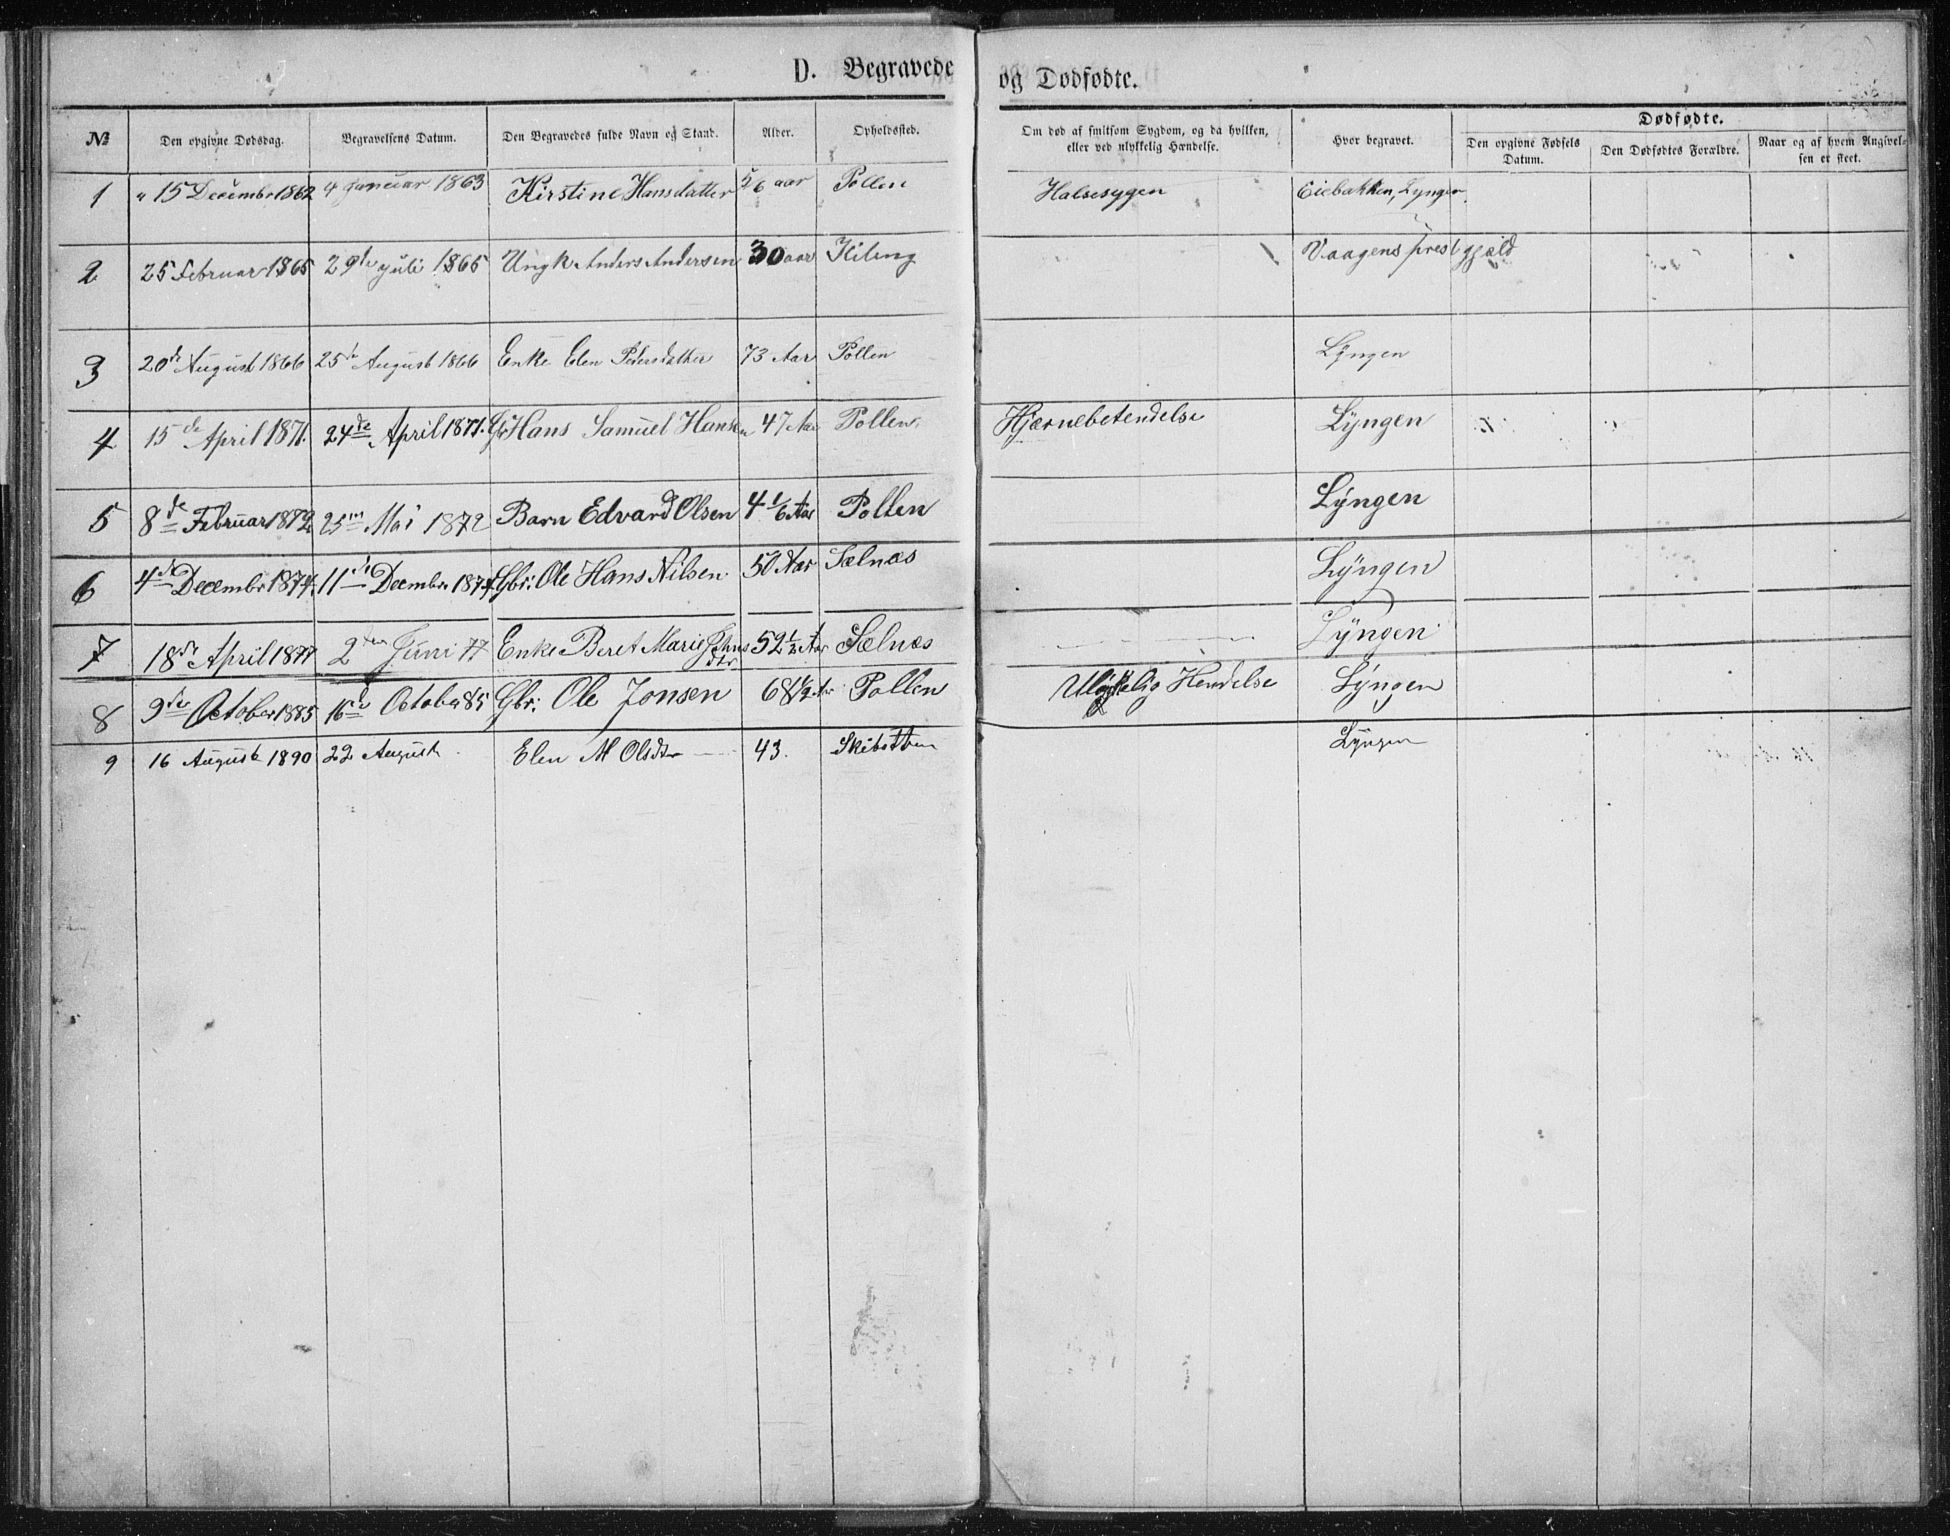 D. Begravede og Dødfødte.
№ Den opgivne Dødsdag. Begravelsens Datum. Den Begravedes fulde Navn og Stand. Alder. Opholdssted. Om død af smitsom Sygdom, og da hvilken, eller ved ulykkelig Hændelse. Hvor begravet. Dødfødte. Den opgivne Fødsels Datum. Den Dødfødtes Forældre. Naar og af hvem Angivelsen er skeet.
1 " 15 Decembr 1862 4 Januar 1863 Kirstine Hansdatter 5/6 aar Pollen Halsesygen Eiebakken, Lyngen.
2 25 Februar 1865 29de juli 1865 Ungk Anders Andersen 30 aar Kileng Vaagens prestgjæld
3 20de August 1866 25de August 1866 Enke Elen Pedersdatter 73 Aar Pollen Lyngen
4 15de April 1871. 24de April 1871. Gbr Hans Samuel Hansen 47 Aar Pollen. Hjærnebetendelse Lÿngen
5 8de Februar 1872 25in Mai 1872 Barn Edvard Olsen 4 1/6 Aar Pollen Lÿngen
6 4de Decembr 1874. 11te Decembr 1874. Gbr: Ole Hans Nilsen. 50 Aar Sælnæs Lÿngen
7 18de April 1877 2den Juni 77 Enke Beret Marie Johnsdtr 52 1/2 Aar Sælnæs Lÿngen
8 9de October 1885 16de October 85 Gbr: Ole Jonsen 68 1/2 Aar Pollen Ulÿkkelig Hendelse Lÿngen
9 16 August 1890 22 August Elen M Olsdtr 43. Skibotten Lÿngen